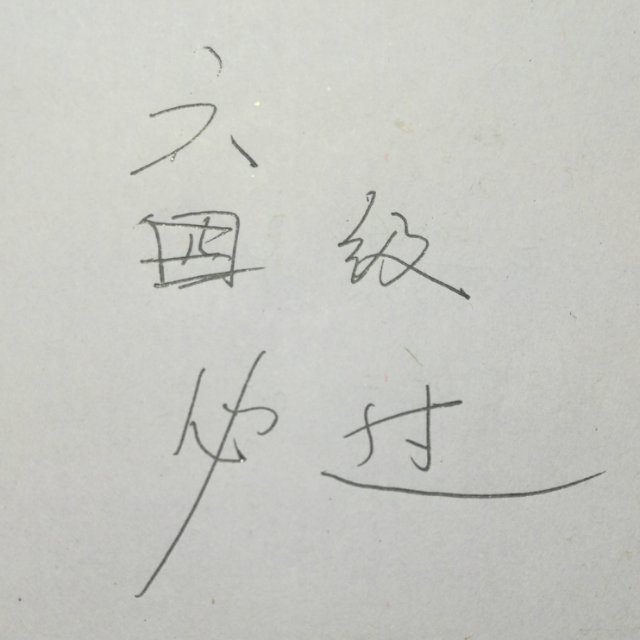 六
四级
必过